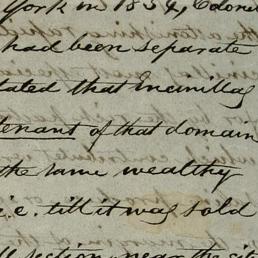 York in 1834, Colone
had been separate
tated that Encinillas
tenant of that domain
the same wealthy
i.e. till it was sold
section, near the cit